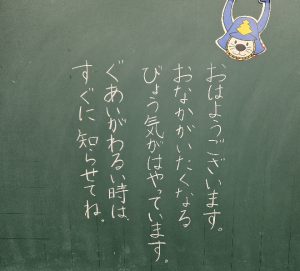 おはようございます。
おなかがいたくなる
びょう気がはやっています。
ぐあいがわるい時は、
すぐに知らせてね。